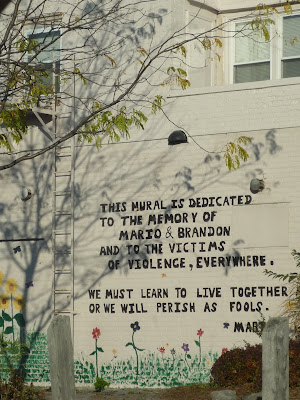 THIS MURAL IS DEDICATED
TO THE MEMORY OF
MARIO & BRANDON
AND TO THE VICTIMS
OF VIOLENCE, EVERYWHERE.
WE MUST LEARN TO LIVE TOGETHER
OR WE WILL PERISH AS FOOLS.